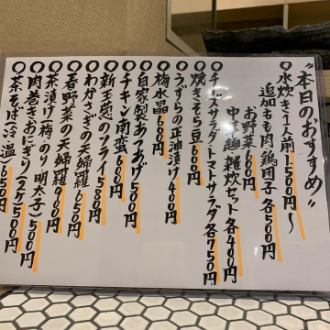 "本日のおすすめ"
○水炊き1人前1500円〜
追加もも肉、鶏団子各500円
お野菜600円
中華麺、雑炊セット各400円
○チーズサラダ、トマトサラダ各750円
○焼きそら豆600円
○うずらの正油漬け400円
○梅水晶600円
○自家製あつあげ500円
○チキン南蛮600円
○新玉葱のフライ580円
○わかさぎの天婦羅600円
○春野菜の天婦羅600円
○茶漬け(梅・のり・明太子)500円
○肉巻きおにぎり(2ケ)500円
○茶そば(冷・温)650円